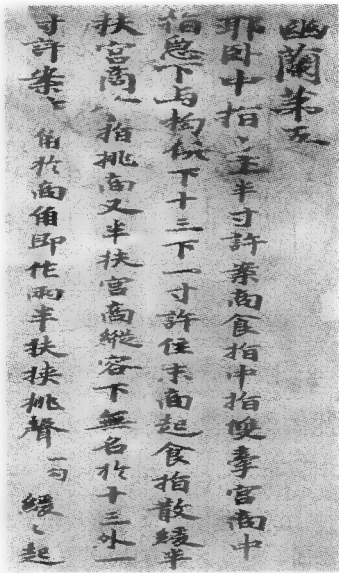 幽蘭苐五
耶臥中指〻十半寸許案商食指中指雙牽宮商中
指急下与拘俱下十三下一寸許住末商起食指散緩半
扶宮商〻指挑商又半扶宮商縱容下無名於十三外一
寸許案〻角於商角即作兩半扶挾挑聲一句緩〻起